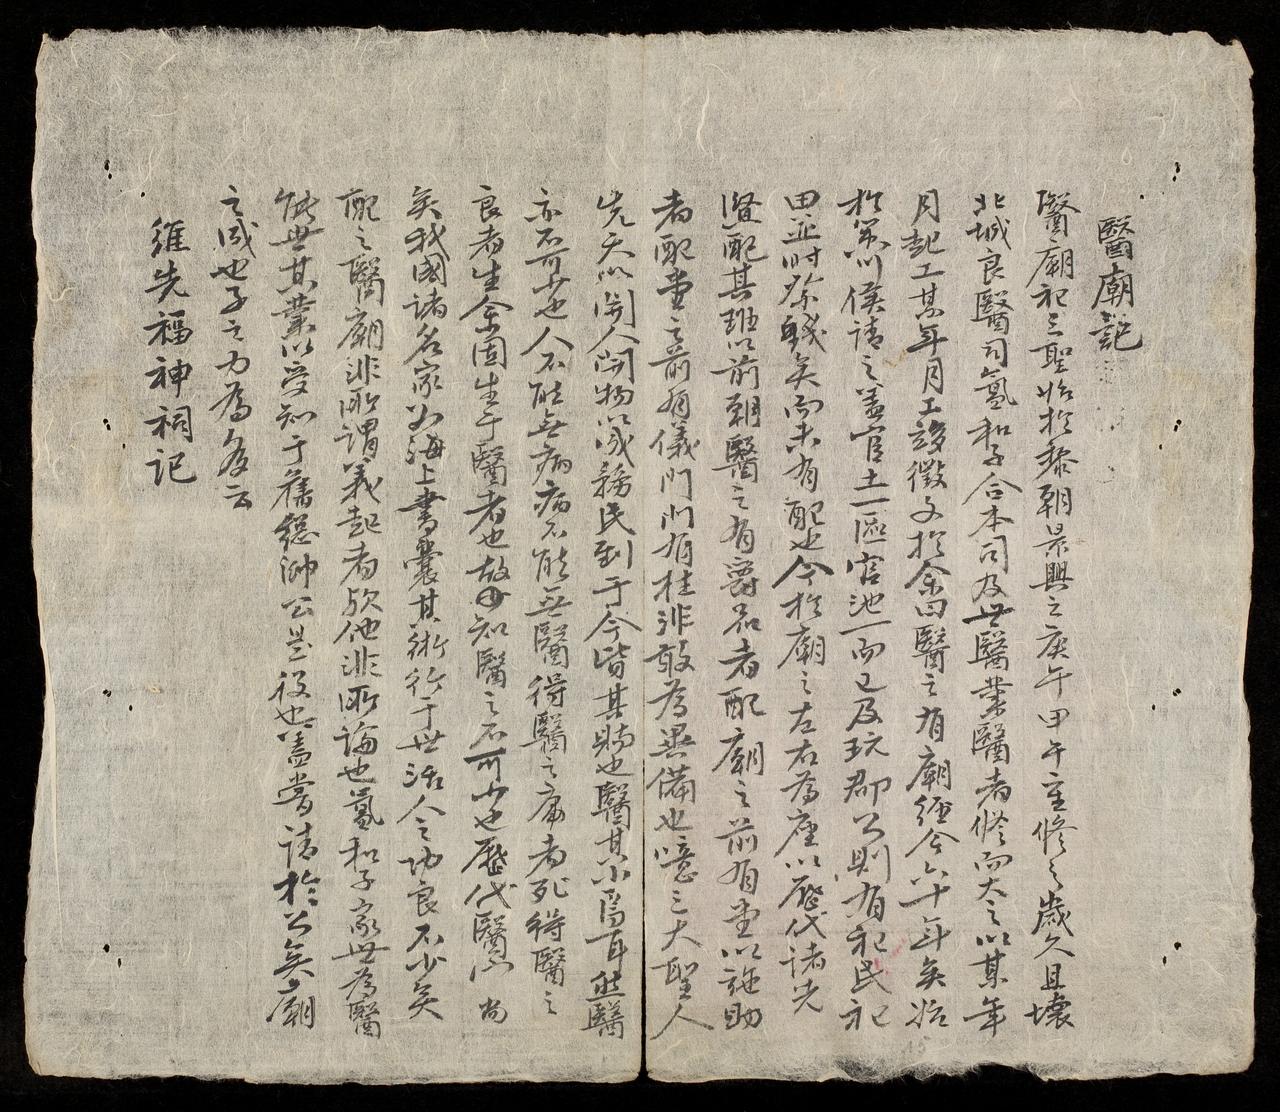 醫廟記
醫廟祀三聖始於黎朝景興之庚午甲午重修之歲久且壞
北城良醫司氳和子合本司及世醫業醫者修而大之以某年
月起工某年月工竣徵文於余曰醫之有廟經今六十年矣始
於 川侯請之蓋官土一區官池一而已及玩郡公則有祀民祀
田並時祭錢矣而未有配也今於廟之左右為座以歷代諸先
醫配其班以前朝醫之有爵品者配廟之前有堂以施助
者配堂之前有儀門門有柱非敢為異備也噫三大聖人
先天以開人開物以成務民到于今皆其賜也醫其小焉耳然醫
亦不可少也人不能無病病不能無醫得醫之庸者死得醫之
良者生余固生于醫者也故 知醫之不可少也歷代醫 尚
矣我國諸名家如海上書囊其術行于世活人之功良不少矣
配之醫廟非所謂義起者歟他非所論也氳和子家世為醫
能世其業以受知于舊總帥公是役也蓋嘗請於公矣廟
之成也子之力為多云
維先福神祠記